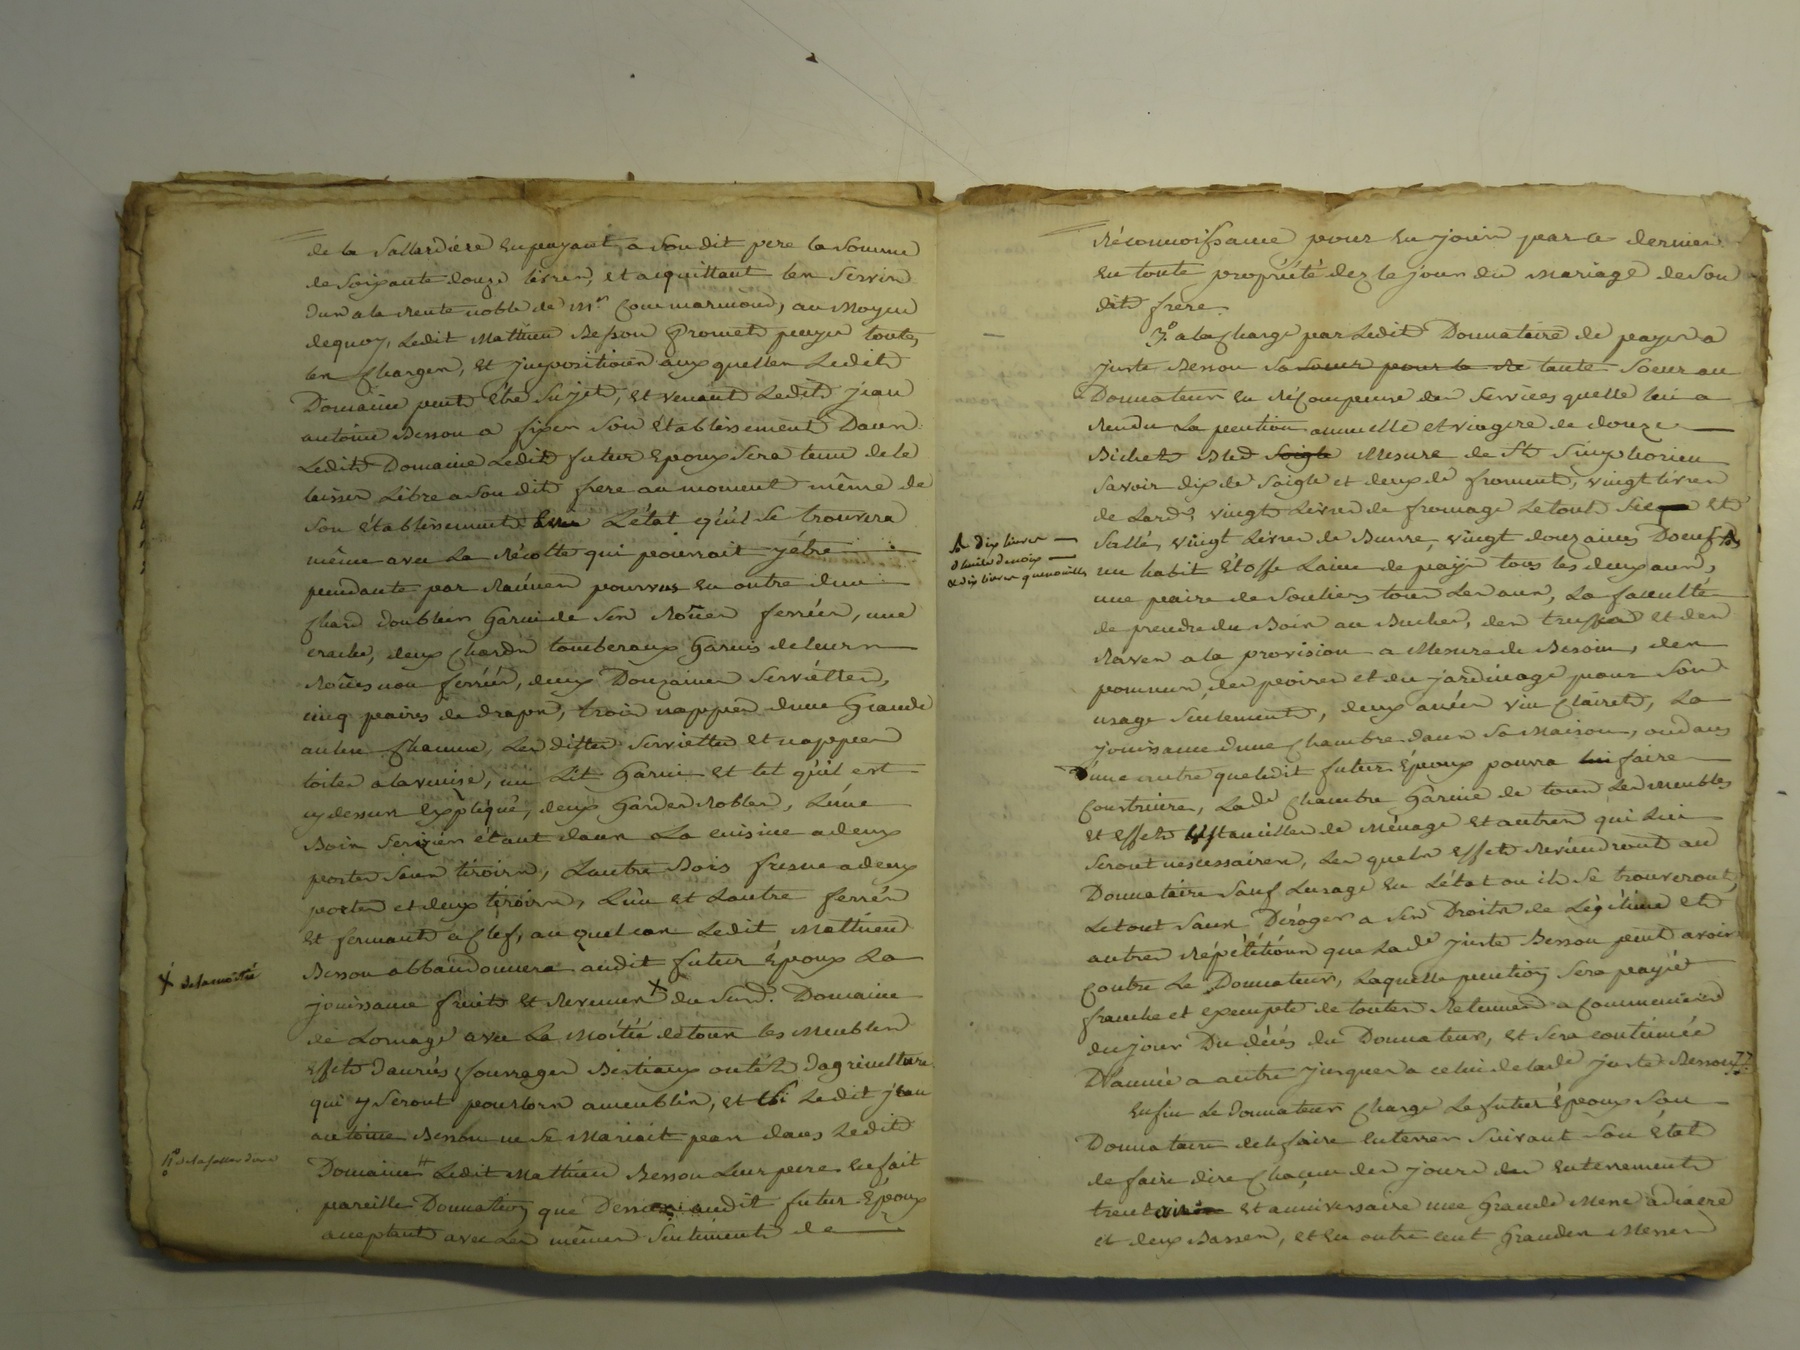 de la Sallardiere en payant, a Son dit pere la Somme
de Soixante douze livres, et acquittant les Servis
dus a la Rente noble de Mr Commarmond, au Moyen
dequoy, Ledit Mathieu Besson Promet payer toutes
les Charges, et jmpositions aux quelles Ledit
Domaine peut être Sujet, et venant Ledit jean
antoine Besson a fixer Son établissement Dans
Ledit Domaine Ledit futur Epoux Sera tenu de le
laisser Libre a Son dit frere au moment même de
Son établissement L'état qu'il Se trouvera
même avec La Récolte qui pourrait y être
pendante par Racines pourvus en outre d'un
Chard doublier Garni de Ses Roües ferrées, une
deux Chards tomberaux Garnis de leurs
Roües non ferrées, deux Douzaines Serviettes,
cinq paires de draps, trois nappes d'une Grande
aulne Chacune, Les dittes Serviettes et nappes
toiles a la venise, un Lit Garni et tel qu'il est
cy dessus Expliqué, deux Garderobles, L'une
Bois Serizier étant dans La cuisine a deux
portes Sans tiroirs, L'autre Bois fresne a deux
portes et deux tiroirs, L'un et L'autre ferrés
et fermants a Clef, au quel cas Ledit Mathieu
Besson abbandonnera audit futur Epoux La
X de la moitié
jouissance fruits et Revenus X du Susd. Domaine
de Lornage avec La Moitié de tous les Meubles
effets Danrés fourrages Bestiaux outils d'agriculture
qui y Seront pour lors ameublés, et Si Ledit jean
antoine Besson ne Se Mariait pas dans Ledit
# de la Sallardiere
Domaine # Ledit Mathieu Besson Leur pere en fait
pareille Donnation que Dessus audit futur Epoux
acceptant avec Les mêmes Sentiments de
Réconnoissance pour en jouir par ce dernier
en toute propriété dez le jour du Mariage de Son
dit frere.
3.° a la Charge par Ledit Donnataire de payer a
juste Besson Sa Soeur pour la de tante Soeur au
Donnateur en Récompense des Services quelle lui a
Rendu La pention annuelle et viagere de douze
Bichets Bled Soigle Mesure de St Simphorien
Savoir dix de Soigle et deux de froment, vingt livres
de Lard, vingt Livres de fromage Le tout Sec et
Sallé, vingt Livres de Burre, vingt douzaines D'oeufs
A dix livres
d'huile de noix
& dix livres quenouilles
un habit Etoffe Laine de paÿs tous les deux ans,
une paire de Souliers tous Les ans, La faculté
de prendre du Bois au Bucher, des truffes et des
Raves a la provision a Mesure de Besoin, des
pommes, des poires et du jardinage pour Son
usage Seulement, deux anées vin Clairet, La
jouissance d'une Chambre dans Sa Maison, ou dans
d'une autre que ledit futur Epoux pourra lui faire
Construire, Lade Chambre Garnie de tous Les Meubles
et Effets Ustancilles de Ménage et autres qui Lui
Seront nécessaires, Les quels Effets Reviendront au
Donnataire Sauf L'usage en L'état ou ils Se trouveront,
Le tout Sans Déroger a Ses Droits de Légitime et
autres Répétitions que Lade juste Besson peut avoir
Contre Le Donnateur, Laquelle pention Sera payée
franche et exempte de toutes Retenues a Commencer
du jour Du décés du Donnateur, et Sera continuée
D'année a autre jusques a celui de lade juste Besson
Enfin Le Donnateur Charge Le futur Epoux Son
Donnataire de le faire Enterrer Suivant Son Etat
de faire dire Chacun des jours de Enterrement
trentaine et anniversaire une Grande Messe a diacre
et deux Basses, et en outre cent Grandes Messes